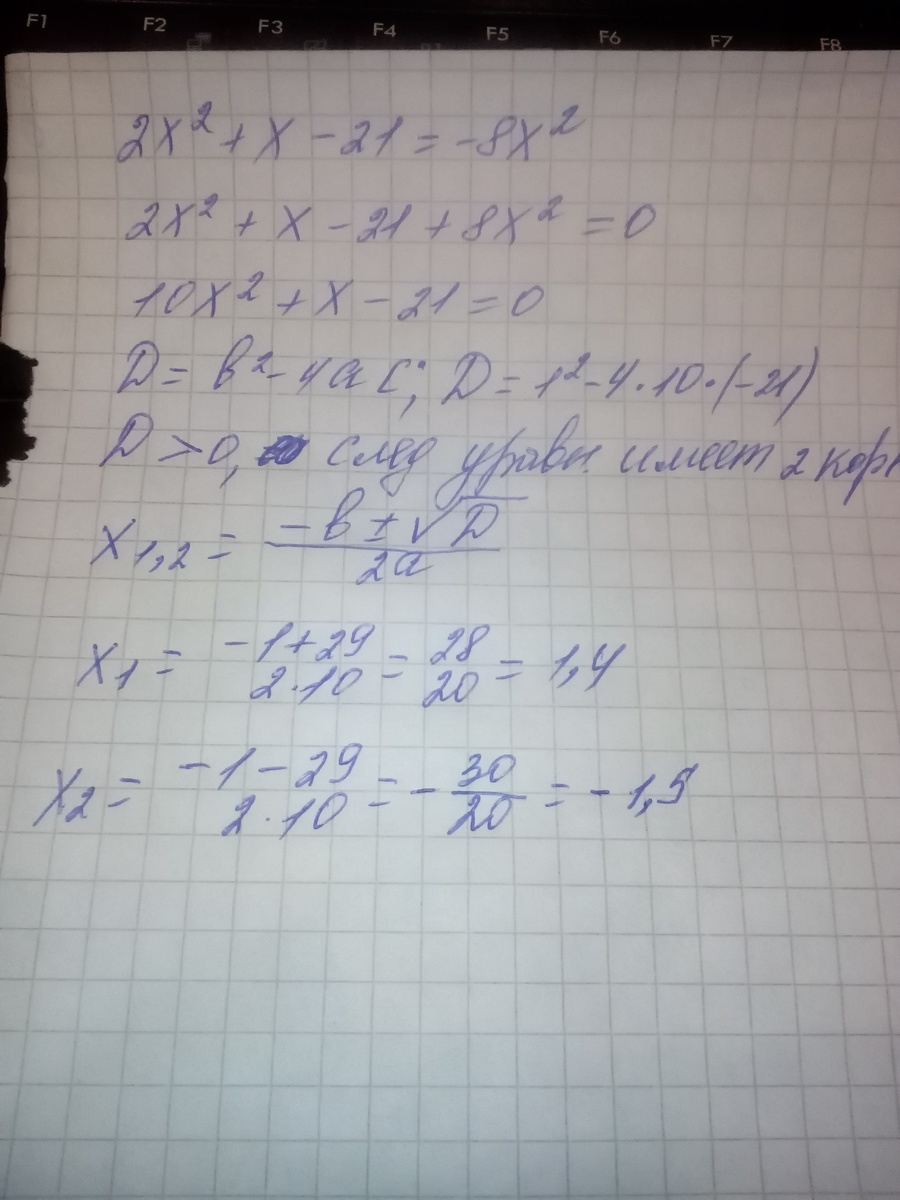 F1 F2 F3 F4 F5 F6 F7 F8
2x² + x - 21 = -8x²
2x² + x - 21 + 8x² = 0
10x² + x - 21 = 0
D = b² - 4ac; D = 1² - 4·10·(-21)
D > 0, след уравн. имеет 2 кор
x₁,₂ = (-b ± √D) / 2a
x₁ = (-1+29) / (2·10) = 28/20 = 1,4
x₂ = (-1-29) / (2·10) = -30/20 = -1,5